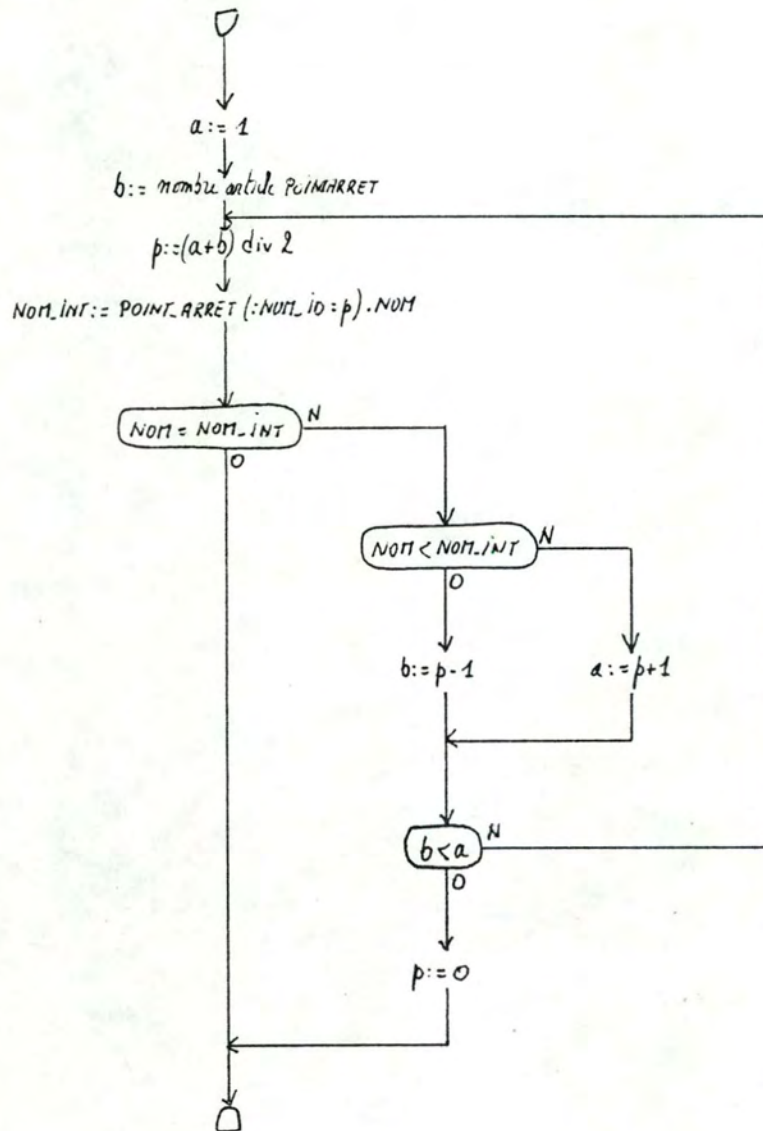 a := 1
b := nombre article POINTARRET
p := (a+b) div 2
NOM_INT := POINT_ARRET (:NUM_ID = p).NOM
NOM = NOM_INT
N
O
NOM < NOM_INT
N
O
b := p - 1
a := p+1
b < a
N
O
p := 0